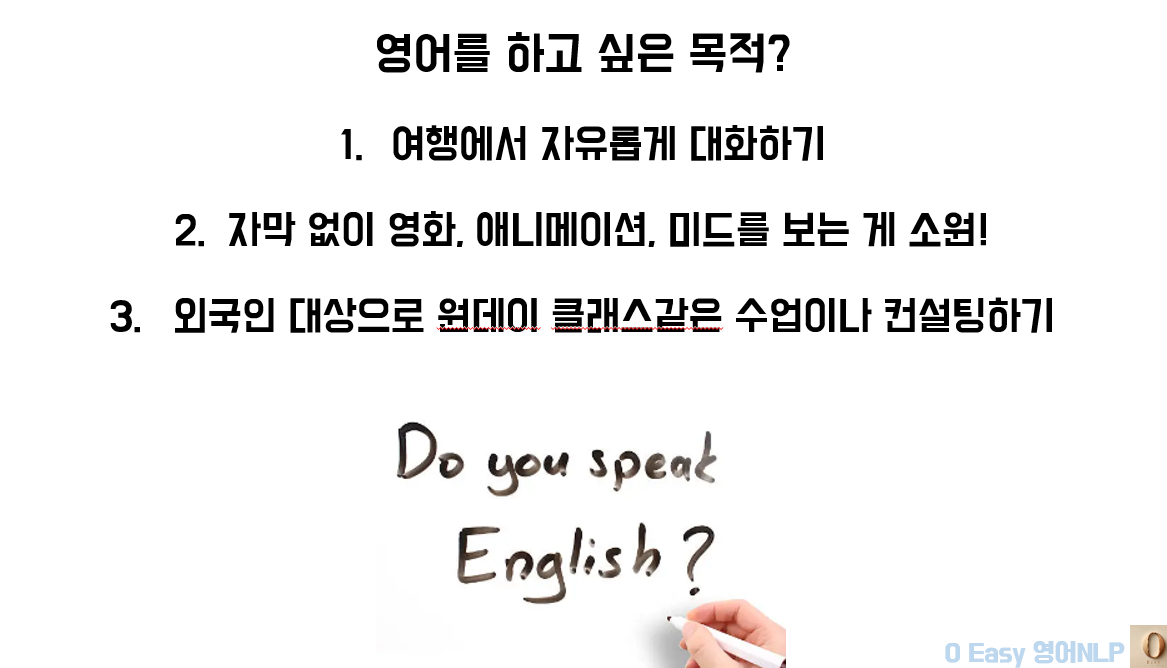 영어를 하고 싶은 목적?
1. 여행에서 자유롭게 대화하기
2. 자막 없이 영화, 애니메이션, 미드를 보는 게 소원!
3. 외국인 대상으로 원데이 클래스같은 수업이나 컨설팅하기
Do you speak
English?
O Easy 영어NLP